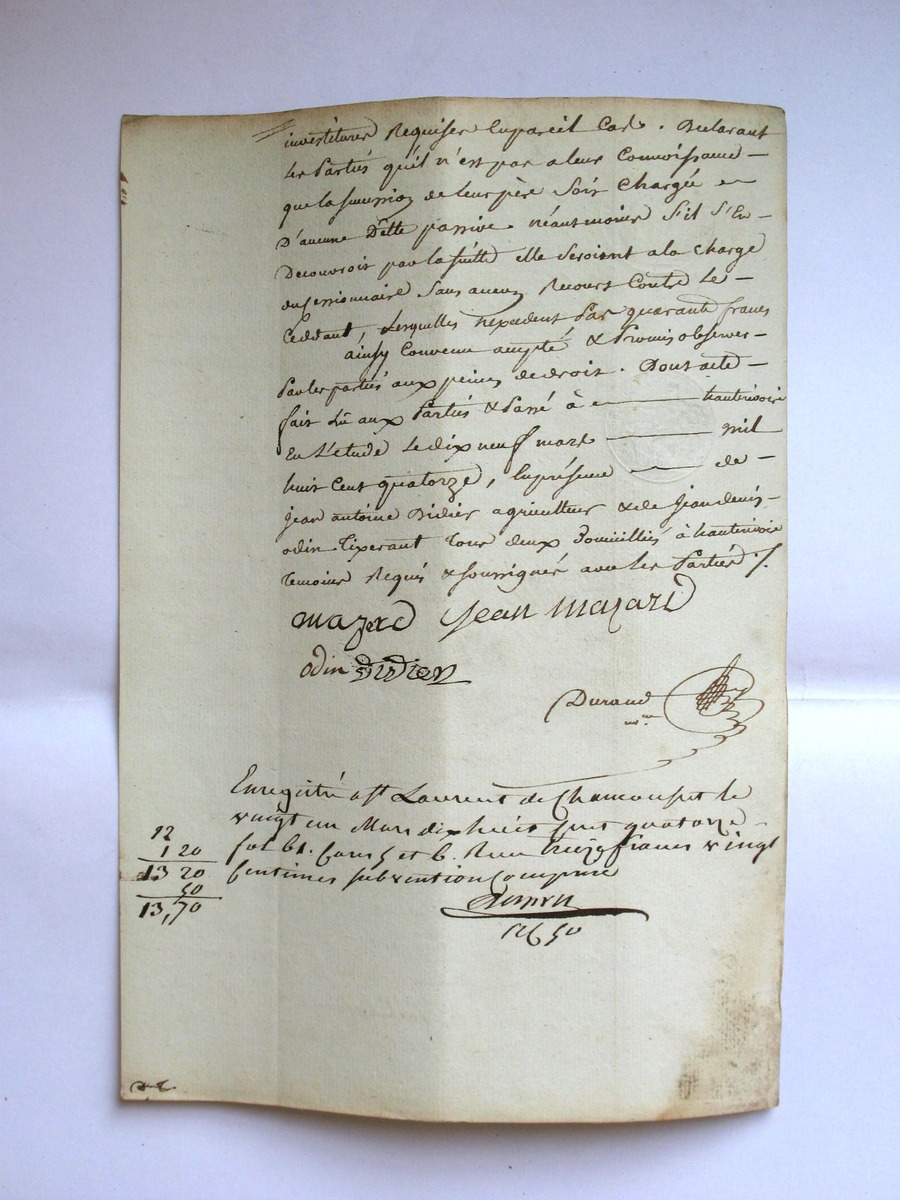 investitures Requises Enpareil Cas. Declarant
Les Parties qu'il n'est pas a leur Connoissance
que la succession de leur père Soit Chargée
D'aucune Dette passive. néantmoins S'il S'En
Decouvroit par la suitte elle Seroient a la Charge
du Cessionnaire Sans aucun Recours Contre Le
Ceddant, Lesquelles n'excedent Pas quarante francs
ainsy Convenu accepté & Promis observer
Par les parties aux peines de droit. Dont acte
fait Lû aux Parties & Passé à hauterivoire
En L'etude Le dix neuf mars mil
huit Cent quatorze, Enpresence de
Jean antoine Didier agriculteur & de Jean denis
odin Tixerant Tous deux Domiciliés à hauterivoire
Temoins Requis & soussignés avec Les Parties
mazard Jean mazard
odin didier
Durand
nore
Enregistré a st Laurent de Chamousset le
vingt un Mars dix huit cent quatorze
fol 61. Cases 5 et 6. Recu treize francs vingt
Centimes subvention Comprise
12
1 20
13 20
50
13,70